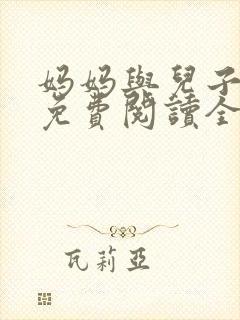 妈妈與兒子
免費閱讀全
瓦莉亞